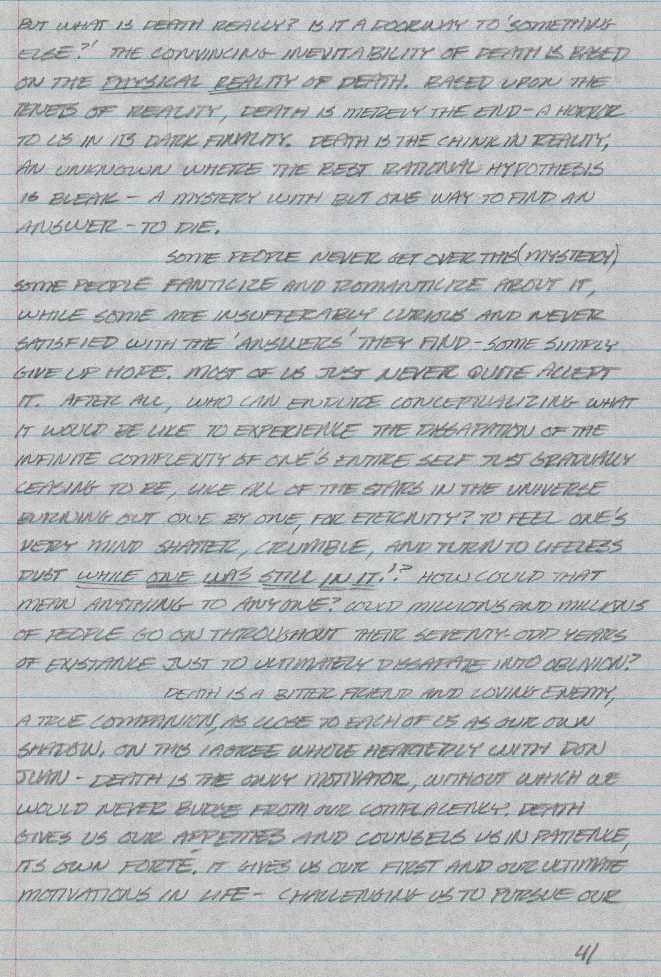 BUT WHAT IS DEATH REALLY? IS IT A DOORWAY TO 'SOMETHING
ELSE?' THE CONVINCING INEVITABILITY OF DEATH IS BASED
ON THE PHYSICAL REALITY OF DEATH. BASED UPON THE
TENETS OF REALITY, DEATH IS MERELY THE END - A HORROR
TO US IN ITS DARK FINALITY. DEATH IS THE CHINK IN REALITY,
AN UNKNOWN WHERE THE BEST RATIONAL HYPOTHESIS
IS BLEAK - A MYSTERY WITH BUT ONE WAY TO FIND AN
ANSWER - TO DIE.
SOME PEOPLE NEVER GET OVER THIS (MYSTERY)
SOME PEOPLE FANTICIZE AND ROMANTICIZE ABOUT IT,
WHILE SOME ARE INSUFFERABLY CURIOUS AND NEVER
SATISFIED WITH THE 'ANSWERS' THEY FIND - SOME SIMPLY
GIVE UP HOPE. MOST OF US JUST NEVER QUITE ACCEPT
IT. AFTER ALL, WHO CAN ENDURE CONCEPTUALIZING WHAT
IT WOULD BE LIKE TO EXPERIENCE THE DISSAPATION OF THE
INFINITE COMPLEXITY OF ONE'S ENTIRE SELF JUST GRADUALLY
CEASING TO BE, LIKE ALL OF THE STARS IN THE UNIVERSE
BURNING OUT ONE BY ONE, FOR ETERNITY? TO FEEL ONE'S
VERY MIND SHATTER, CRUMBLE, AND TURN TO LIFELESS
DUST WHILE ONE WAS STILL IN IT!? HOW COULD THAT
MEAN ANYTHING TO ANYONE? COULD MILLIONS AND MILLIONS
OF PEOPLE GO ON THROUGHOUT THEIR SEVENTY-ODD YEARS
OF EXISTANCE JUST TO ULTIMATELY DISSAPATE INTO OBLIVION?
DEATH IS A BITTER FRIEND AND LOVING ENEMY,
A TRUE COMPANION, AS CLOSE TO EACH OF US AS OUR OWN
SHADOW. ON THIS I AGREE WHOLE HEARTEDLY WITH DON
JUAN - DEATH IS THE ONLY MOTIVATOR, WITHOUT WHICH WE
WOULD NEVER BUDGE FROM OUR COMPLACENCY. DEATH
GIVES US OUR APPETITES AND COUNSELS US IN PATIENCE,
ITS OWN FORTÉ. IT GIVES US OUR FIRST AND OUR ULTIMATE
MOTIVATIONS IN LIFE - CHALLENGING US TO PURSUE OUR
41